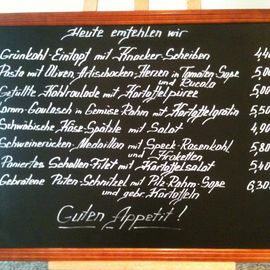 Heute emfehlen wir
Grünkohl-Eintopf mit Knacker-Scheiben 4,40
Pasta mit Oliven, Artischocken-Herzen in Tomaten Soße 5,00
und Rucola
Gefüllte Kohlroulade mit Kartoffelpüree 5,00
Lamm-Goulasch in Gemüse-Rahm mit Kartoffelgratin 5,50
Schwäbische Käse-Spätzle mit Salat 4,90
Schweinerücken-Medaillon mit Speck-Rosenkohl 5,80
und Kroketten
Paniertes Schollen-Filet mit Kartoffelsalat 6,30
Gebratene Puten-Schnitzel mit Pilz-Rahm-Soße 5,40
und gebr. Kartoffeln
Guten Appetit!